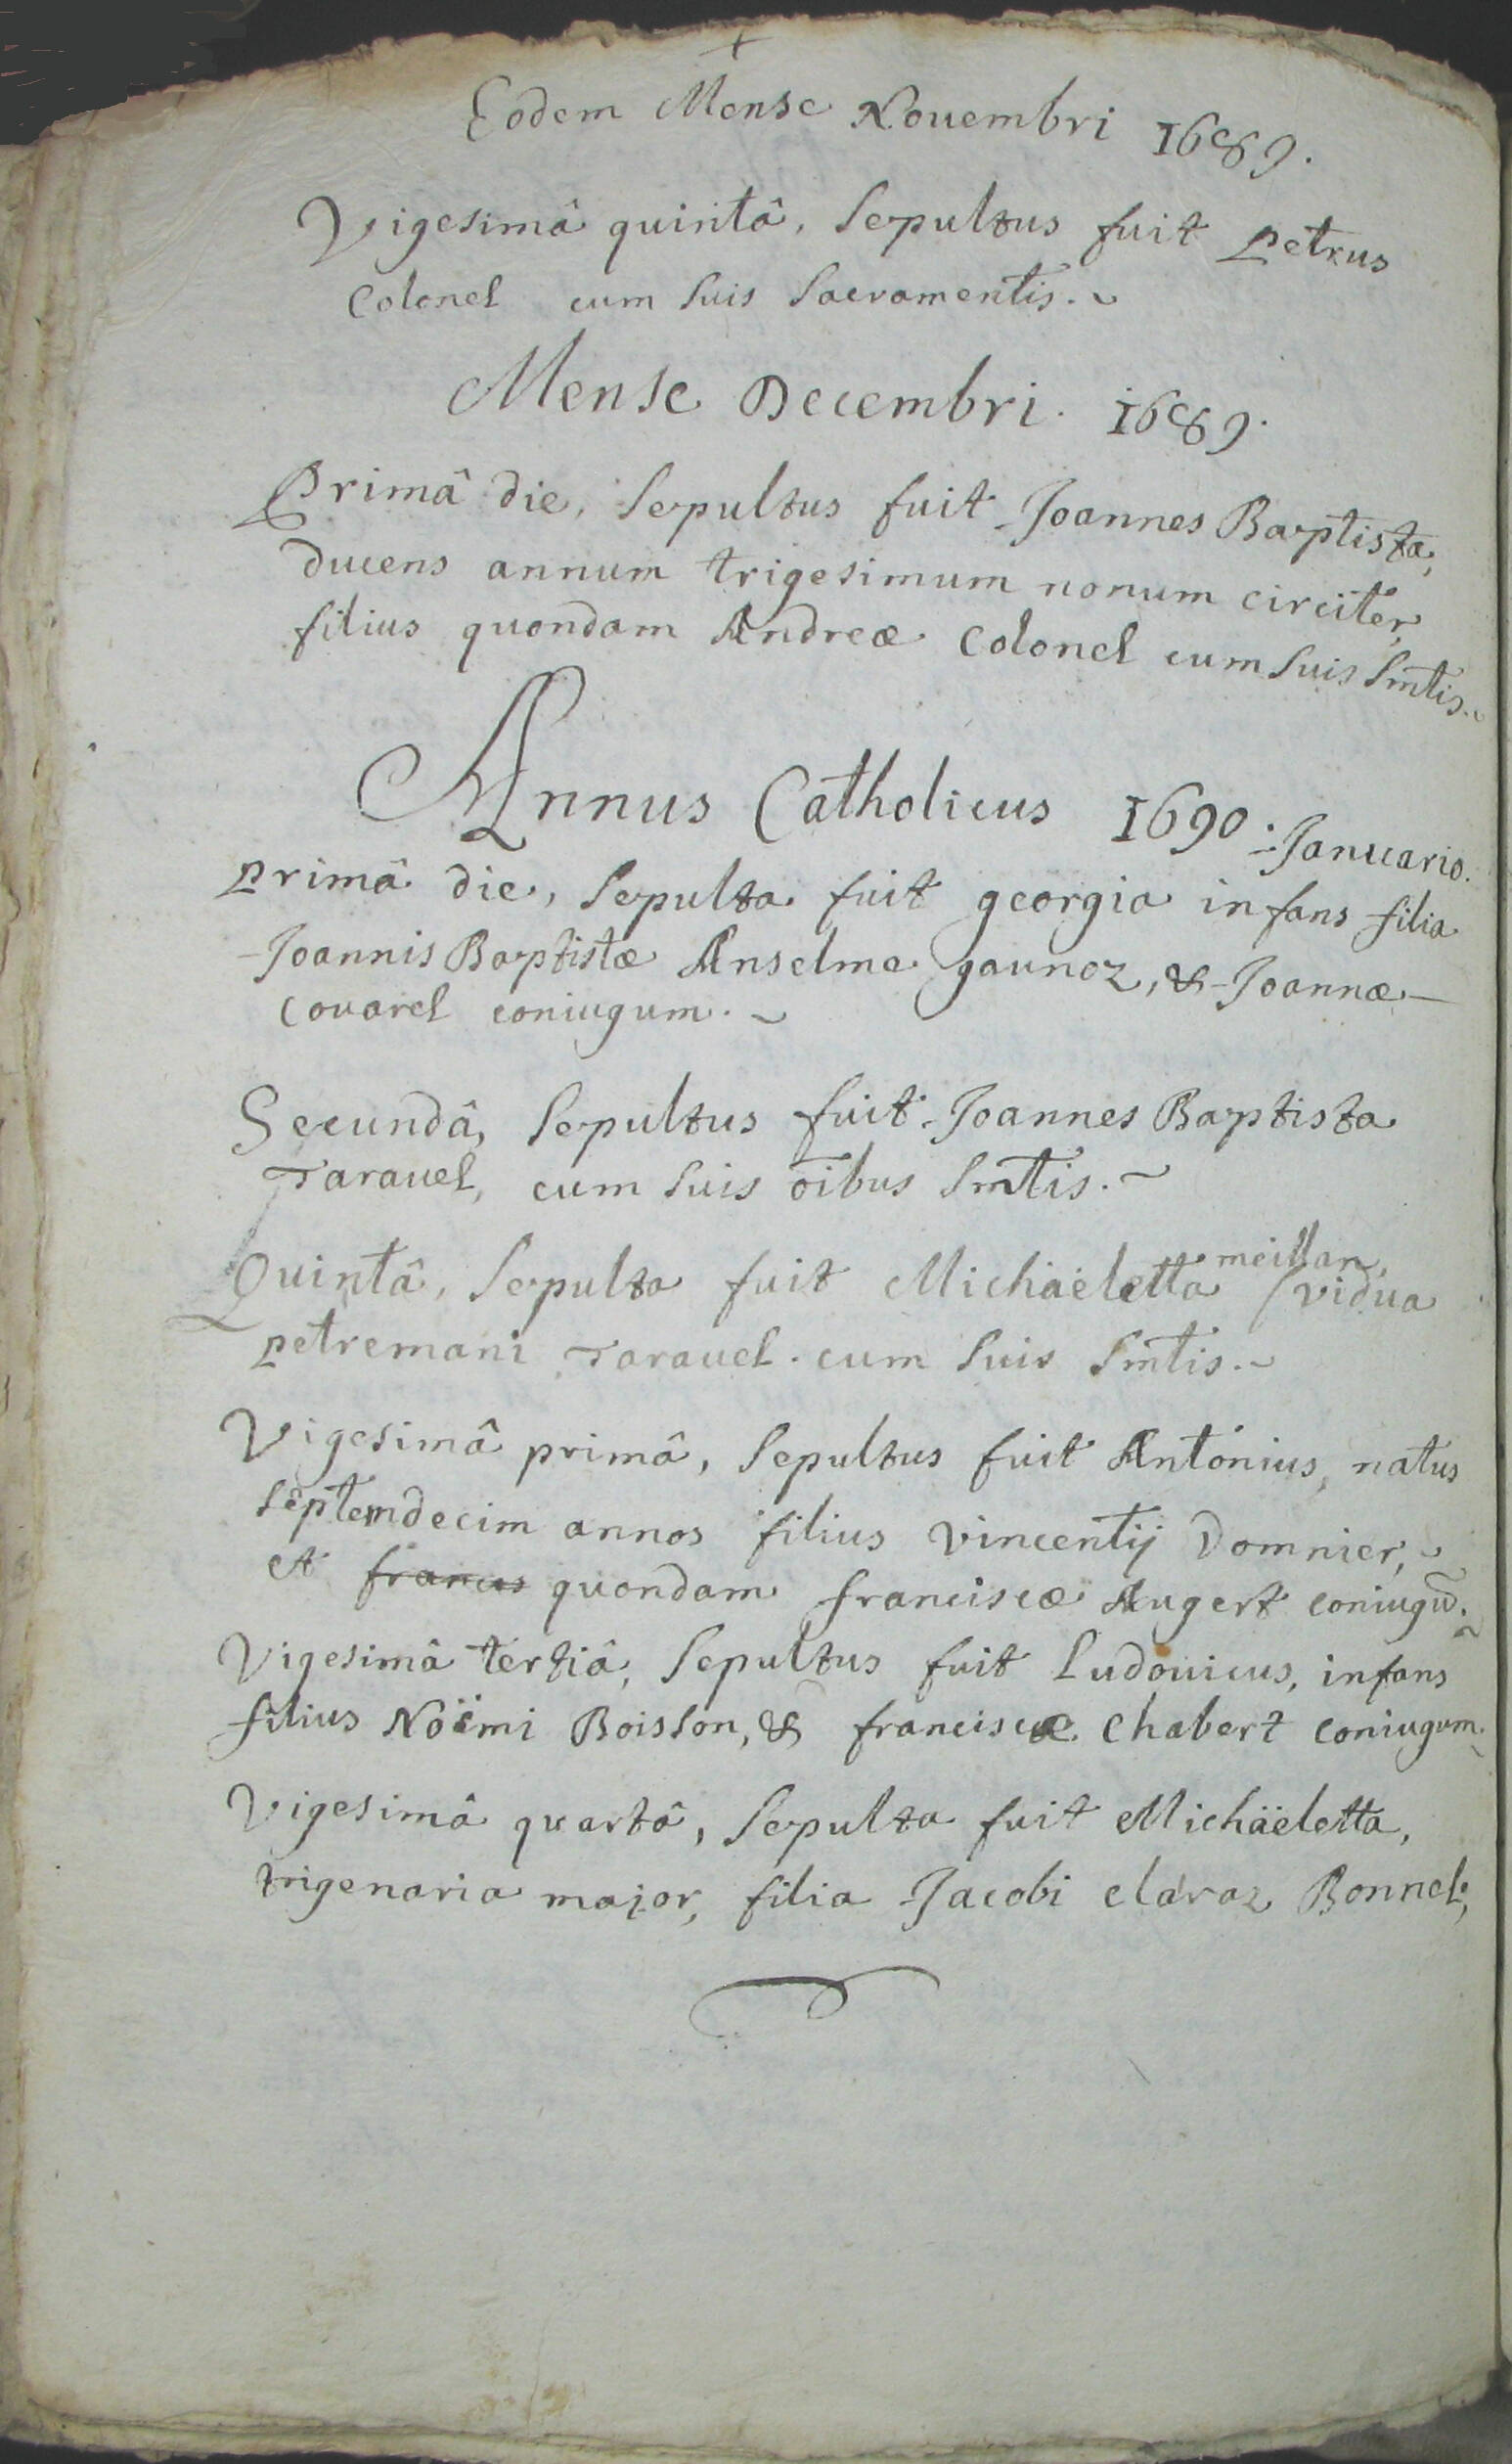 +
Eodem Mense Nouembri 1689.
Vigesimâ quintâ, Sepultus fuit petrus
Colonel cum suis Sacramentis.~
Mense Decembri. 1689.
Primâ die, Sepultus fuit Joannes Baptista,
ducens annum trigesimum nonum circiter,
filius quondam Andreæ Colonel cum suis Smtis.~
Annus Catholicus 1690. Januario.
primâ die, Sepulta fuit georgia infans filia
Joannis Baptistæ Anselme gaunoz, & Joannæ
Couarel coniugum.~
Secundâ, Sepultus fuit Joannes Baptista
Tarauel, cum suis oibus Smtis.~
Quintâ, Sepulta fuit Michäeletta meillan, vidua
petremani Tarauel. cum suis Smtis.~
Vigesimâ primâ, Sepultus fuit Antonius, natus
septemdecim annos filius vincentij Domnier,~
et francis quondam franciscæ Augert coniugū.~
Vigesimâ tertiâ, Sepultus fuit Ludouicus, infans
filius Nöemi Boisson, & franciscæ Chabert coniugum.~
Vigesimâ quartâ, Sepulta fuit Michäeletta,
trigenaria major, filia Jacobi claraz Bonnel,